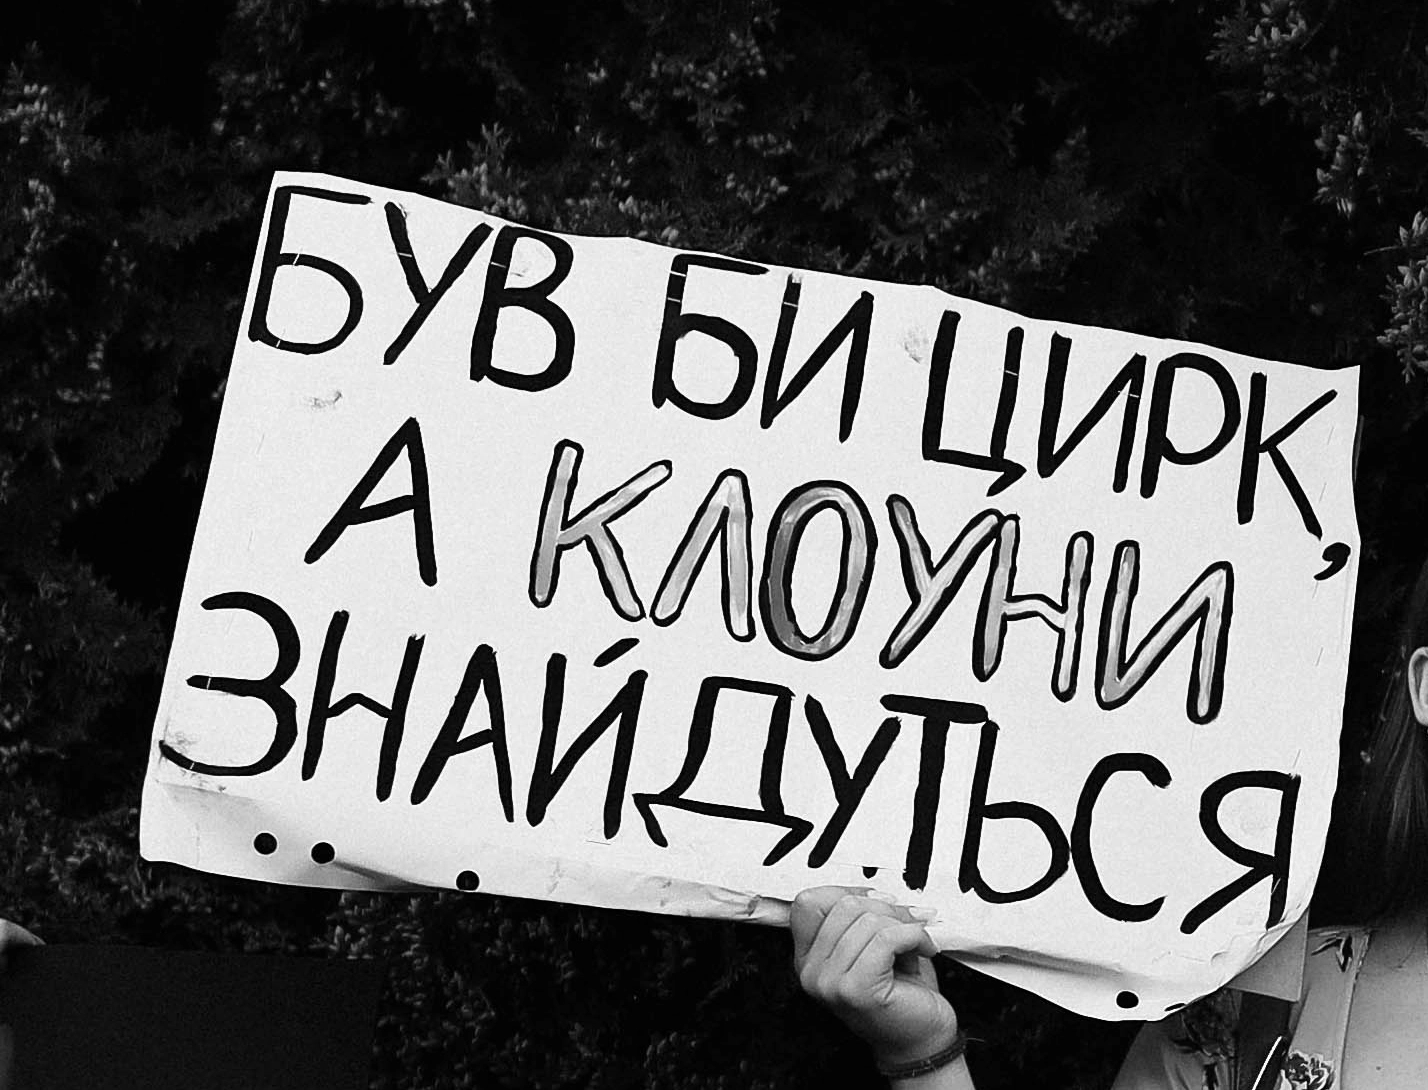 БУВ БИ ЦИРК,
А КЛОУНИ
ЗНАЙДУТЬСЯ